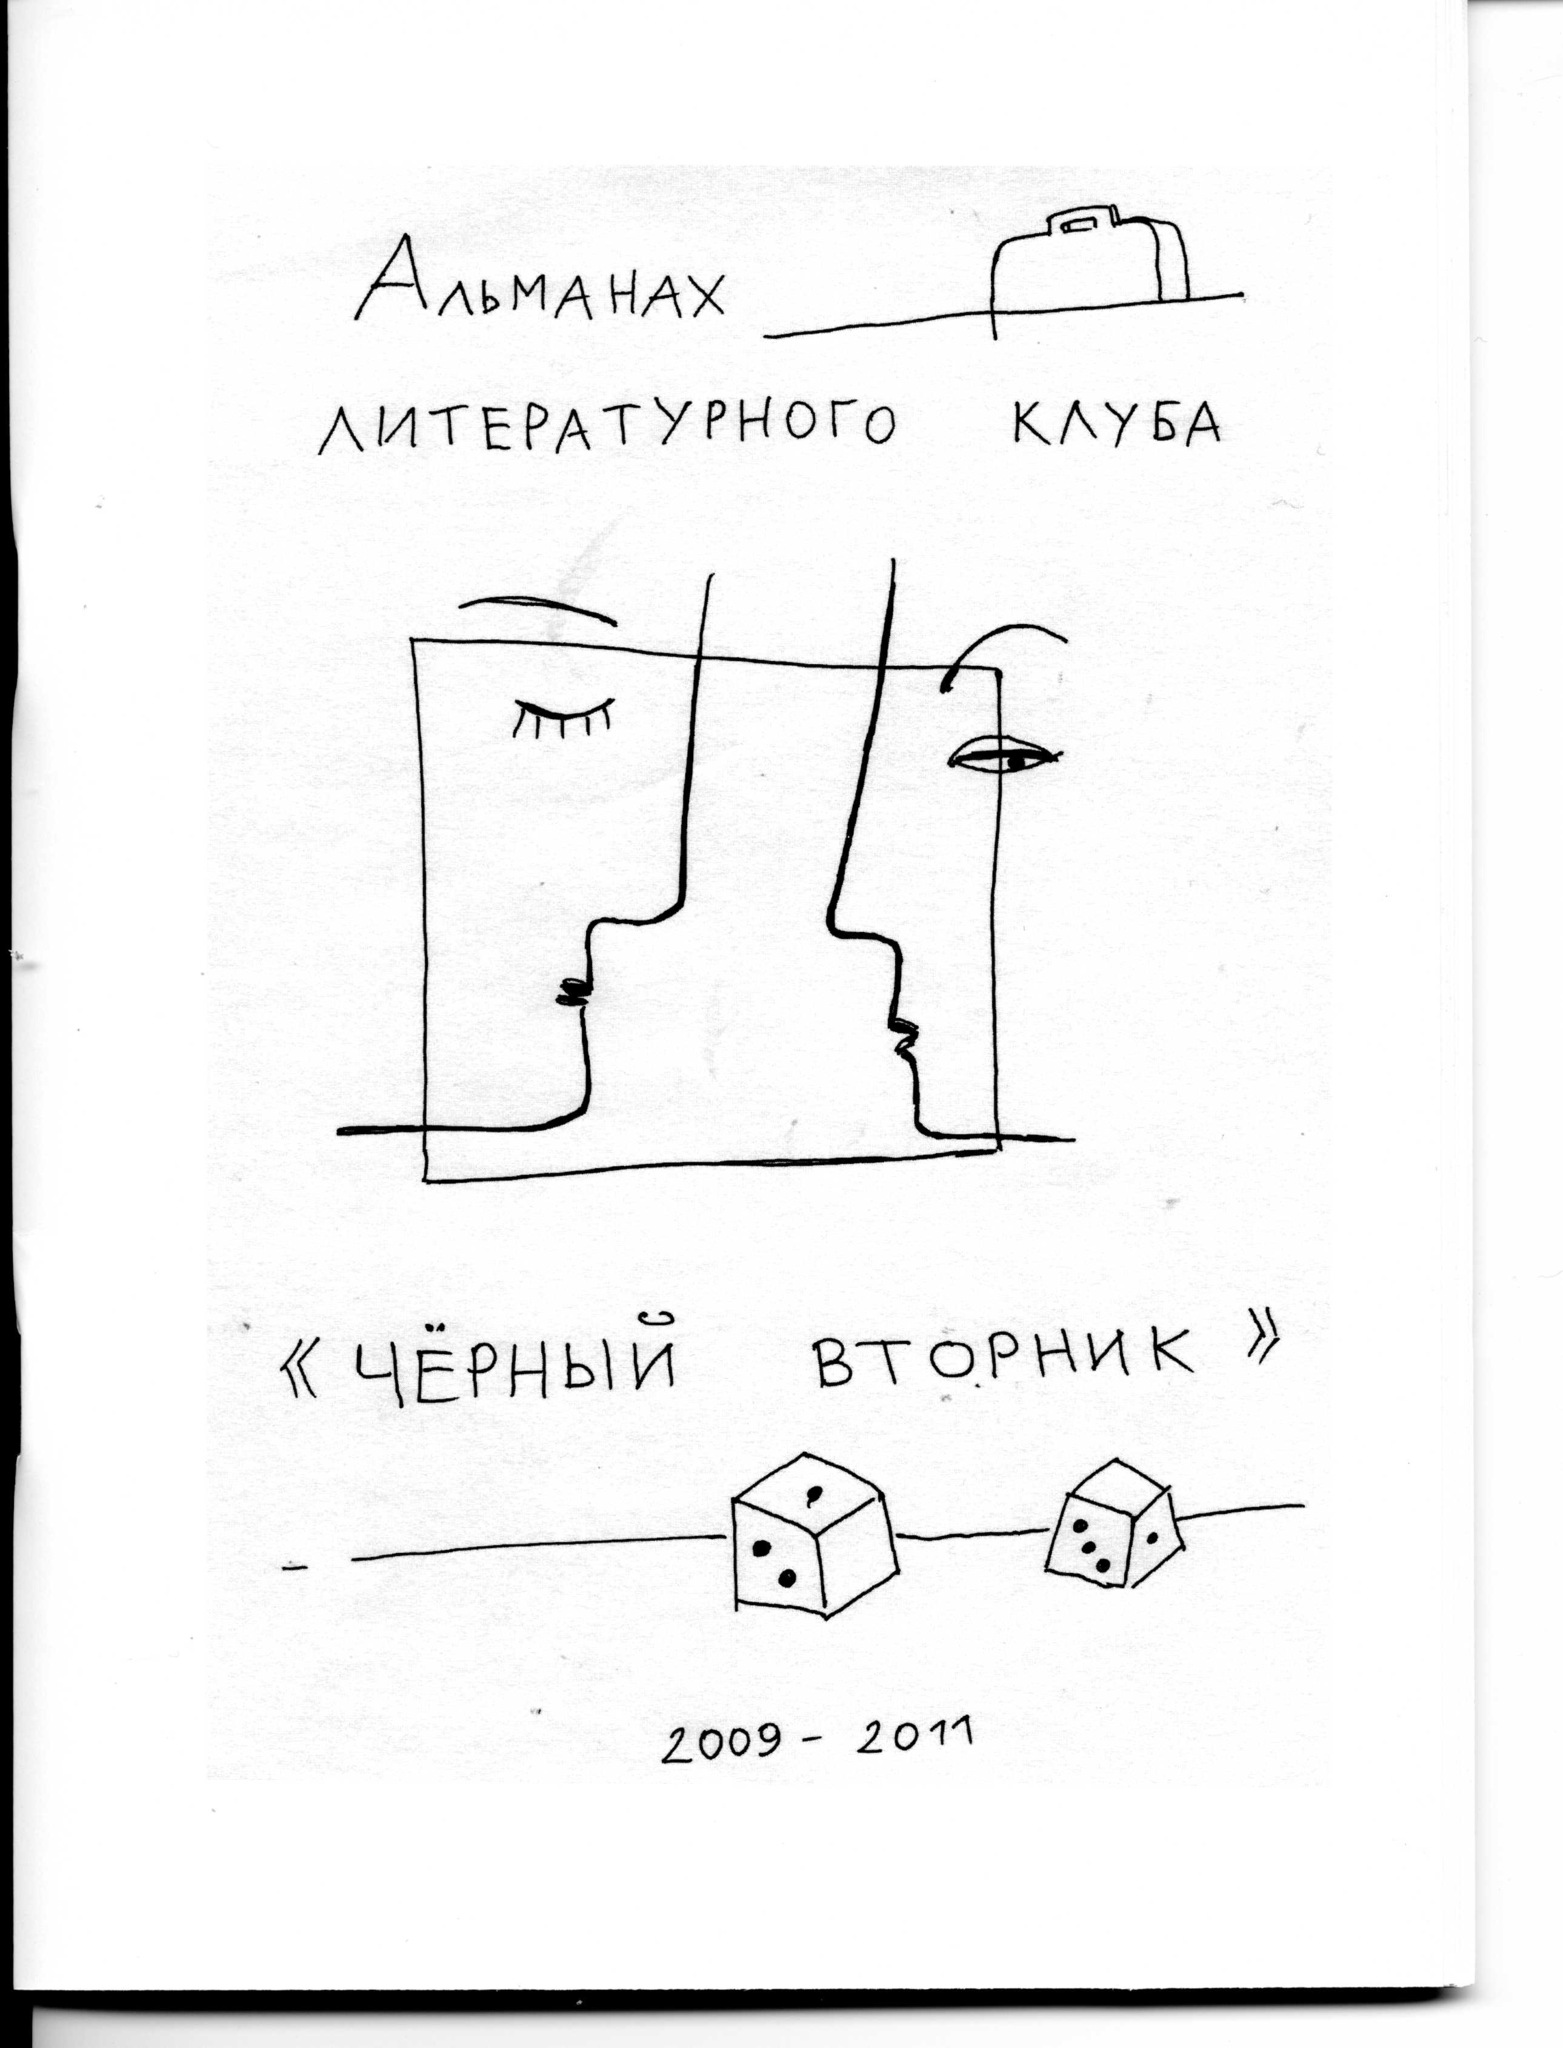 Альманах
литературного клуба
«Чёрный вторник»
2009 - 2011